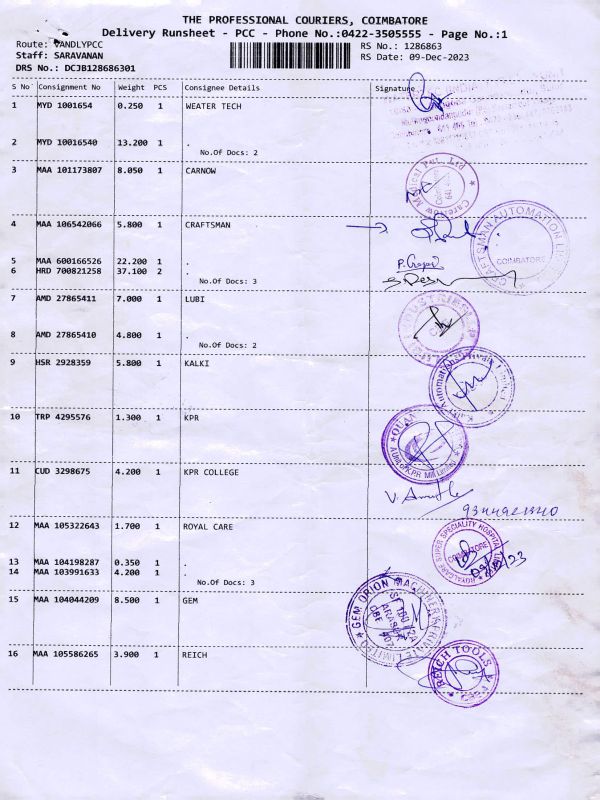 THE PROFESSIONAL COURIERS, COIMBATORE
Delivery Runsheet - PCC - Phone No.:0422-3505555 - Page No.:1
Route: VANDLYPCC
RS No.: 1286863
Staff: SARAVANAN
RS Date: 09-Dec-2023
DRS No.: DCJB128686301
S No Consignment No Weight PCS Consignee Details Signature
1 MYD 1001654 0.250 1 WEATER TECH
2 MYD 10016540 13.200 1 .
No.Of Docs: 2
3 MAA 101173807 8.050 1 CARNOW
Medical Pvt. Ltd
4 MAA 106542066 5.800 1 CRAFTSMAN
CRAFTSMAN AUTOMATION
COIMBATORE
5 MAA 600166526 22.200 1 .
6 HRD 700821258 37.100 2 .
No.Of Docs: 3
7 AMD 27865411 7.000 1 LUBI
8 AMD 27865410 4.800 1 .
No.Of Docs: 2
9 HSR 2928359 5.800 1 KALKI
10 TRP 4295576 1.300 1 KPR
11 CUD 3298675 4.200 1 KPR COLLEGE
12 MAA 105322643 1.700 1 ROYAL CARE
ROYALCARE SUPER SPECIALITY HOSPITAL
COIMBATORE
13 MAA 104198287 0.350 1 .
14 MAA 103991633 4.200 1 .
No.Of Docs: 3
15 MAA 104044209 8.500 1 GEM
GEM ORION MACHINERY PRIVATE LIMITED
16 MAA 105586265 3.900 1 REICH
REICH TOOLS